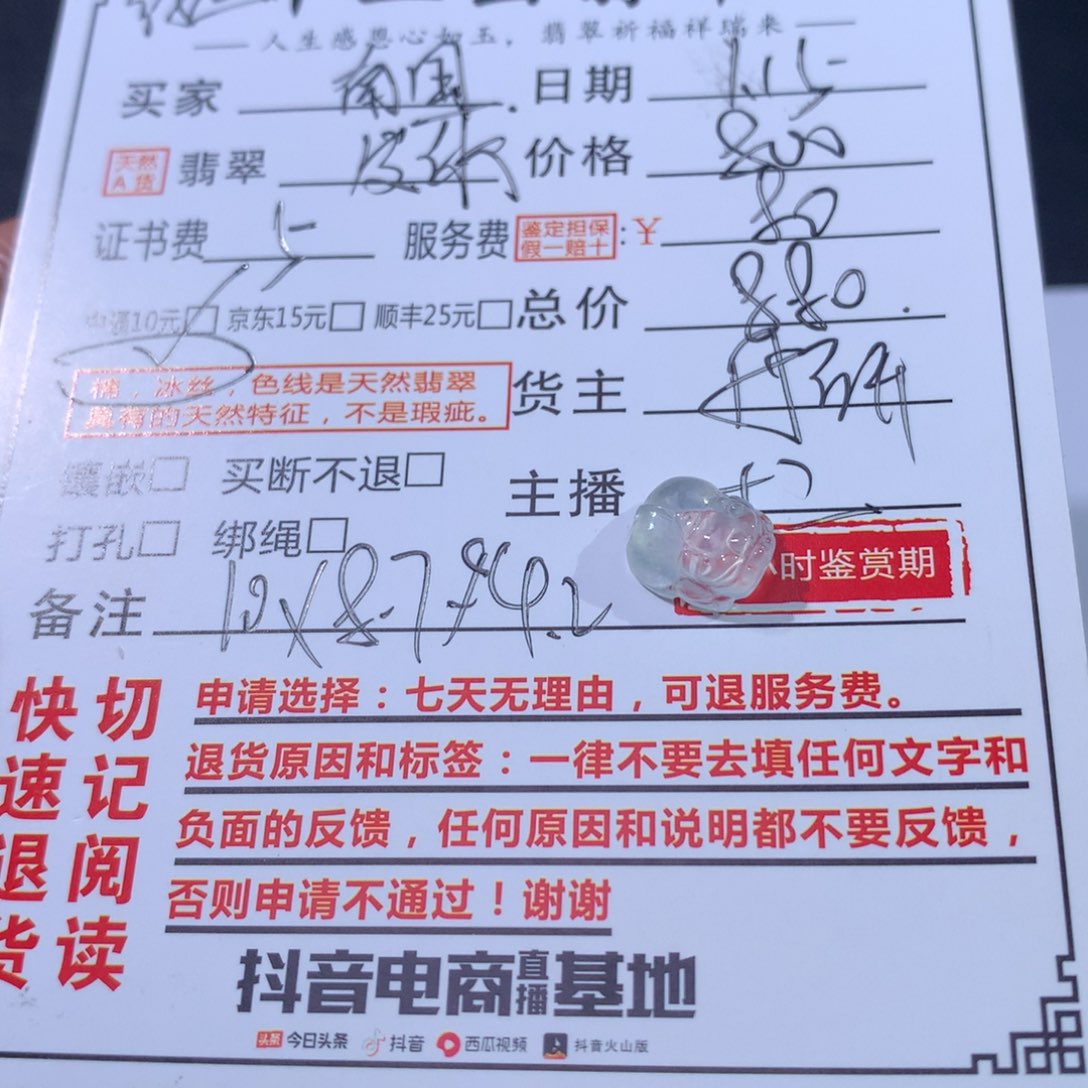 人生感恩心如玉，翡翠祈福祥瑞来
买家 南国 日期 1.15
天然A货 翡翠 价格 800
证书费 5 服务费 鉴定担保 假一赔十：￥ 80
申通10元□ 京东15元□ 顺丰25元□ 总价 880.
棉，冰丝，色线是天然翡翠
具有的天然特征，不是瑕疵。 货主
镶嵌□ 买断不退□ 主播
打孔□ 绑绳□ 小时鉴赏期
备注 10×8.7×4.2
快速退货 切记阅读
申请选择：七天无理由，可退服务费。
退货原因和标签：一律不要去填任何文字和
负面的反馈，任何原因和说明都不要反馈，
否则申请不通过！谢谢
抖音电商直播基地
头条 今日头条 抖音 西瓜视频 抖音火山版